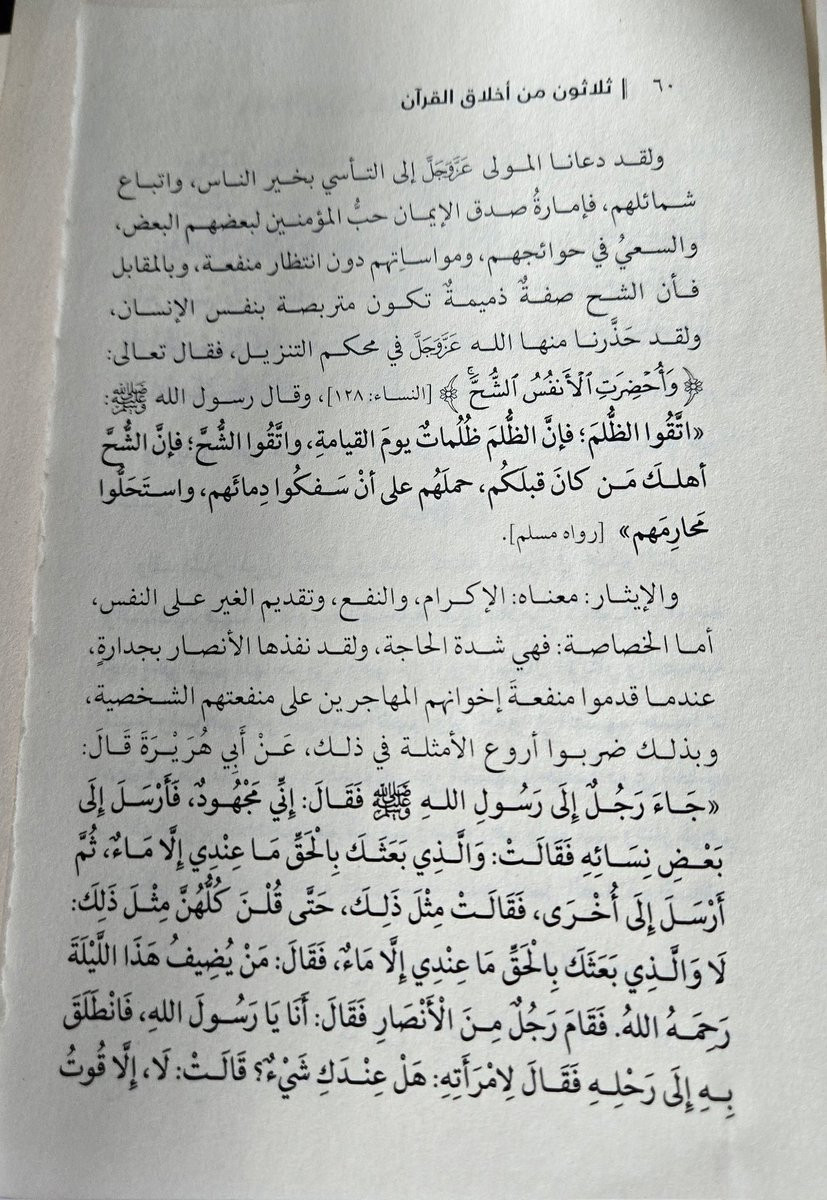 ٦٠ || ثلاثون من أخلاق القرآن
ولقد دعانا المولى عَزَّوَجَلَّ إلى التأسي بخير الناس، واتباع
شمائلهم، فإمارةُ صدق الإيمان حبُّ المؤمنين لبعضهم البعض،
والسعيُ في حوائجهم، ومواساتِهم دون انتظار منفعة، وبالمقابل
فأن الشح صفةٌ ذميمةٌ تكون متربصة بنفس الإنسان،
ولقد حَذَّرنا منها الله عَزَّوَجَلَّ في محكم التنزيل، فقال تعالى:
﴿وَأُحْضِرَتِ ٱلْأَنفُسُ ٱلشُّحَّ ۚ﴾ [النساء: ١٢٨]، وقال رسول الله ﷺ:
«اتَّقُوا الظُّلمَ؛ فإنَّ الظُّلمَ ظُلُماتٌ يومَ القيامةِ، واتَّقُوا الشُّحَّ؛ فإنَّ الشُّحَّ
أهلكَ مَن كانَ قبلَكُم، حملَهُم على أنْ سَفكُوا دِمائَهم، واستَحَلُّوا
مَحارِمَهم» [رواه مسلم].
والإيثار: معناه: الإكرام، والنفع، وتقديم الغير على النفس،
أما الخصاصة: فهي شدة الحاجة، ولقد نفذها الأنصار بجدارةٍ،
عندما قدموا منفعةَ إخوانهم المهاجرين على منفعتهم الشخصية،
وبذلك ضربوا أروع الأمثلة في ذلك، عَنْ أَبِي هُرَيْرَةَ قَالَ:
«جَاءَ رَجُلٌ إِلَى رَسُولِ اللهِ ﷺ فَقَالَ: إِنِّي مَجْهُودٌ، فَأَرْسَلَ إِلَى
بَعْضِ نِسَائِهِ فَقَالَتْ: وَالَّذِي بَعَثَكَ بِالْحَقِّ مَا عِنْدِي إِلَّا مَاءٌ، ثُمَّ
أَرْسَلَ إِلَى أُخْرَى، فَقَالَتْ مِثْلَ ذَلِكَ، حَتَّى قُلْنَ كُلُّهُنَّ مِثْلَ ذَلِكَ:
لَا وَالَّذِي بَعَثَكَ بِالْحَقِّ مَا عِنْدِي إِلَّا مَاءٌ، فَقَالَ: مَنْ يُضِيفُ هَذَا اللَّيْلَةَ
رَحِمَهُ اللهُ. فَقَامَ رَجُلٌ مِنَ الْأَنْصَارِ فَقَالَ: أَنَا يَا رَسُولَ اللهِ، فَانْطَلَقَ
بِهِ إِلَى رَحْلِهِ فَقَالَ لِامْرَأَتِهِ: هَلْ عِنْدَكِ شَيْءٌ؟ قَالَتْ: لَا، إِلَّا قُوتُ